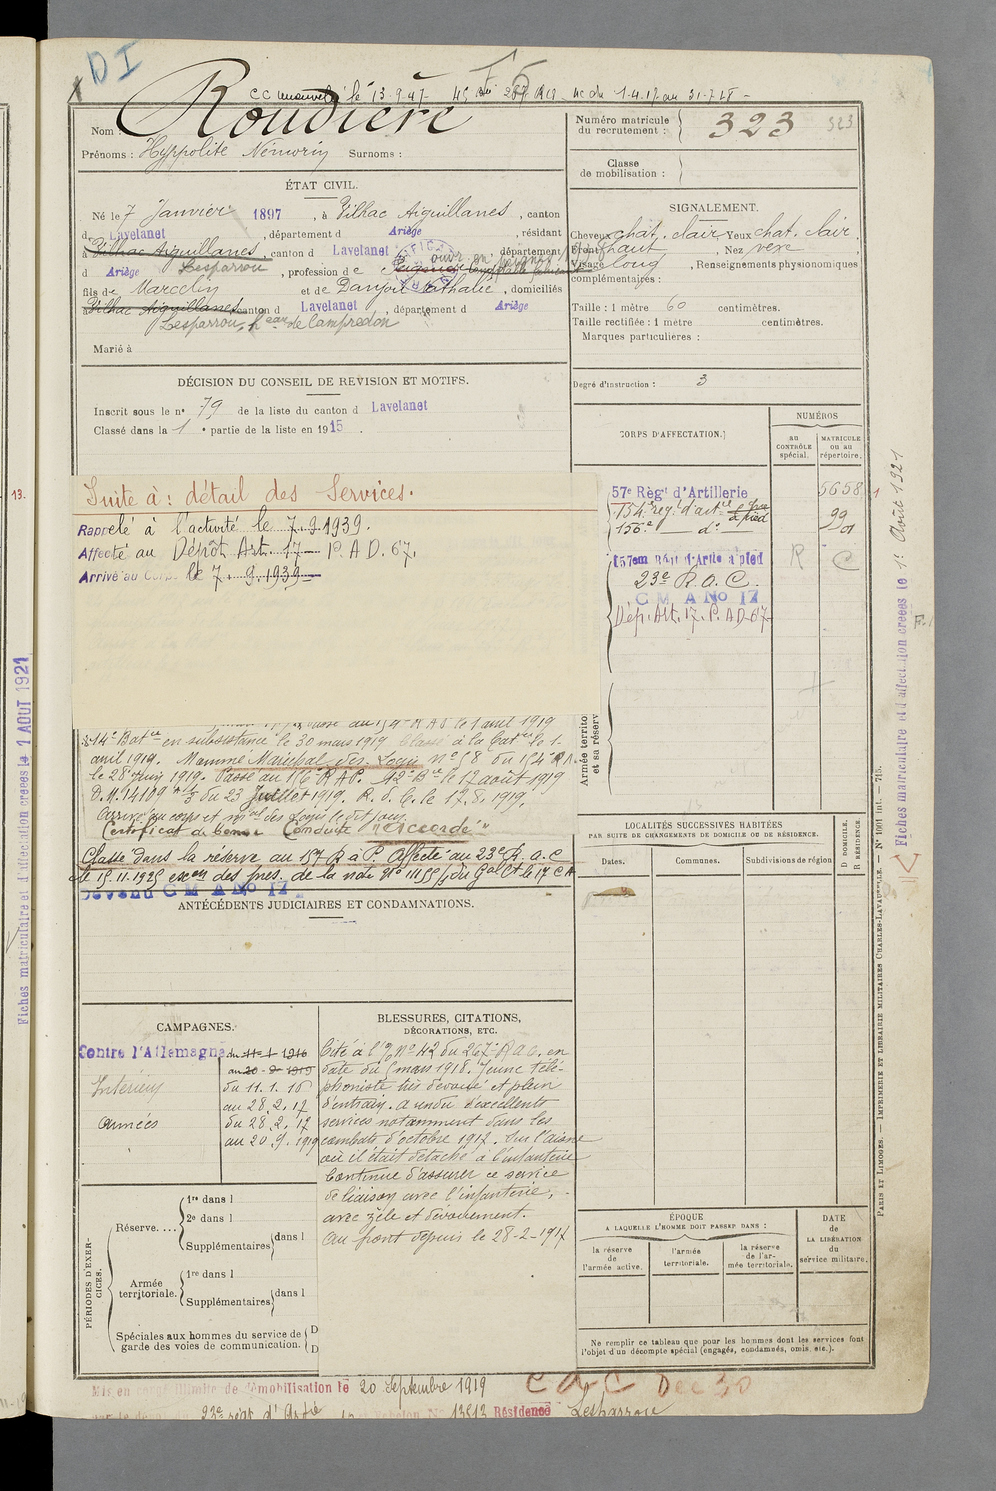 DI
CC le 13.9.47 du 1.4.17 au 31.7.18
Nom Roudière
Prénoms : Hyppolite Némorin Surnoms :
Numéro matricule du recrutement : 323 323
Classe de mobilisation :
ÉTAT CIVIL.
Né le 7 Janvier 1897, à Pilhac Aiguillanes, canton
d Lavelanet, département d Ariège, résidant
à Pilhac Aiguillanes, canton d Lavelanet, département
d Ariège Lesparrou, profession de
fils de Marcelin et de Danjou Nathalie, domiciliés
à Pilhac Aiguillanes canton d Lavelanet, département d Ariège
Lesparrou, heau de Campredon
Marié à
SIGNALEMENT.
Cheveux chat. clair Yeux chat. clair,
Front haut, Nez vexe
Visage long, Renseignements physionomiques
complémentaires :
Taille : 1 mètre 60 centimètres.
Taille rectifiée : 1 mètre centimètres.
Marques particulières :
Degré d'instruction : 3
DÉCISION DU CONSEIL DE REVISION ET MOTIFS.
Inscrit sous le n° 79 de la liste du canton d Lavelanet
Classé dans la 1e partie de la liste en 1915.
CORPS D'AFFECTATION.
NUMÉROS
au CONTRÔLE spécial.
MATRICULE ou au répertoire.
57e Régt d'Artillerie 5658
154e régt d'artie à pied 99
156e d°
157em Régt d'Artie à pied R C
23e R.a.C.
C M A No 17
Dép. Art. 17. P. A D. 67
Armée territo
et sa réserv
Suite à : détail des Services.
Rappelé à l'activité le 7.9.1939.
Affecté au Dépôt Art. 17 P. A D. 67.
Arrivé au Corps le 7.9.1939
au 154e R A P le 1 avril 1919
14e Batie en subsistance le 30 mars 1919 Classé à la Batie le 1.
avril 1919. Nommé Maréchal des Logis n° 58 du 154 R A
le 28 Juin 1919. Passé au 156e R A P. 12e Bie le 12 août 1919
D.M. 14109 3 du 23 Juillet 1919. R. d. C. le 17.8.1919.
Arrivé au corps et mal des logis le dit jour
Certificat de bonne Conduite "Accordé"
Classé dans la réserve au 157 R à P. Affecté au 23e R.a.C
le 15.11.1925 exon des pres. de la note N° 11155/5 du Gal Ct le 17 C A
Devenu C M A No 17
ANTÉCÉDENTS JUDICIAIRES ET CONDAMNATIONS.
LOCALITÉS SUCCESSIVES HABITÉES
PAR SUITE DE CHANGEMENTS DE DOMICILE OU DE RÉSIDENCE.
Dates.
Communes.
Subdivisions de région
D DOMICILE.
R RÉSIDENCE.
CAMPAGNES.
Contre l'Allemagne du 11-1-1916
au 20-9-1919
Intérieur du 11.1.16
au 28.2.17
Armées du 28.2.17
au 20.9.1919
BLESSURES, CITATIONS,
DÉCORATIONS, ETC.
Cité à l'o/ N° 42 du 267e R a C. en
date du 5 mars 1918. Jeune télé-
phoniste très dévoué et plein
d'entrain. a rendu d'excellents
services notamment dans les
combats d'octobre 1917. Sur l'aisne
où il était détaché à l'infanterie
Continue d'assurer ce service
de liaison avec l'infanterie,
avec zèle et dévouement.
Au front depuis le 28-2-1917
PÉRIODES D'EXERCICES.
Réserve.... 1re dans l
2e dans l
Supplémentaires dans l
Armée territoriale. 1re dans l
Supplémentaires dans l
Spéciales aux hommes du service de D
garde des voies de communication. D
ÉPOQUE
A LAQUELLE L'HOMME DOIT PASSER DANS :
la réserve de l'armée active.
l'armée territoriale.
la réserve de l'armée territoriale.
DATE de LA LIBÉRATION du service militaire.
Ne remplir ce tableau que pour les hommes dont les services font
l'objet d'un décompte spécial (engagés, condamnés, omis, etc.).
Mis en congé illimité de démobilisation le 20 Septembre 1919
CAC Dec 30
23e régt d'Artie échelon N° 13513 Résidence Lesparrou
Fiches matriculaire et d'affectation créées le 1 AOUT 1921
13.
Fiches matriculaire et d'affectation créées le 1er Août 1921
PARIS ET LIMOGES. — IMPRIMERIE ET LIBRAIRIE MILITAIRES CHARLES-LAVAUZELLE. — N° 1001 int. — 715.